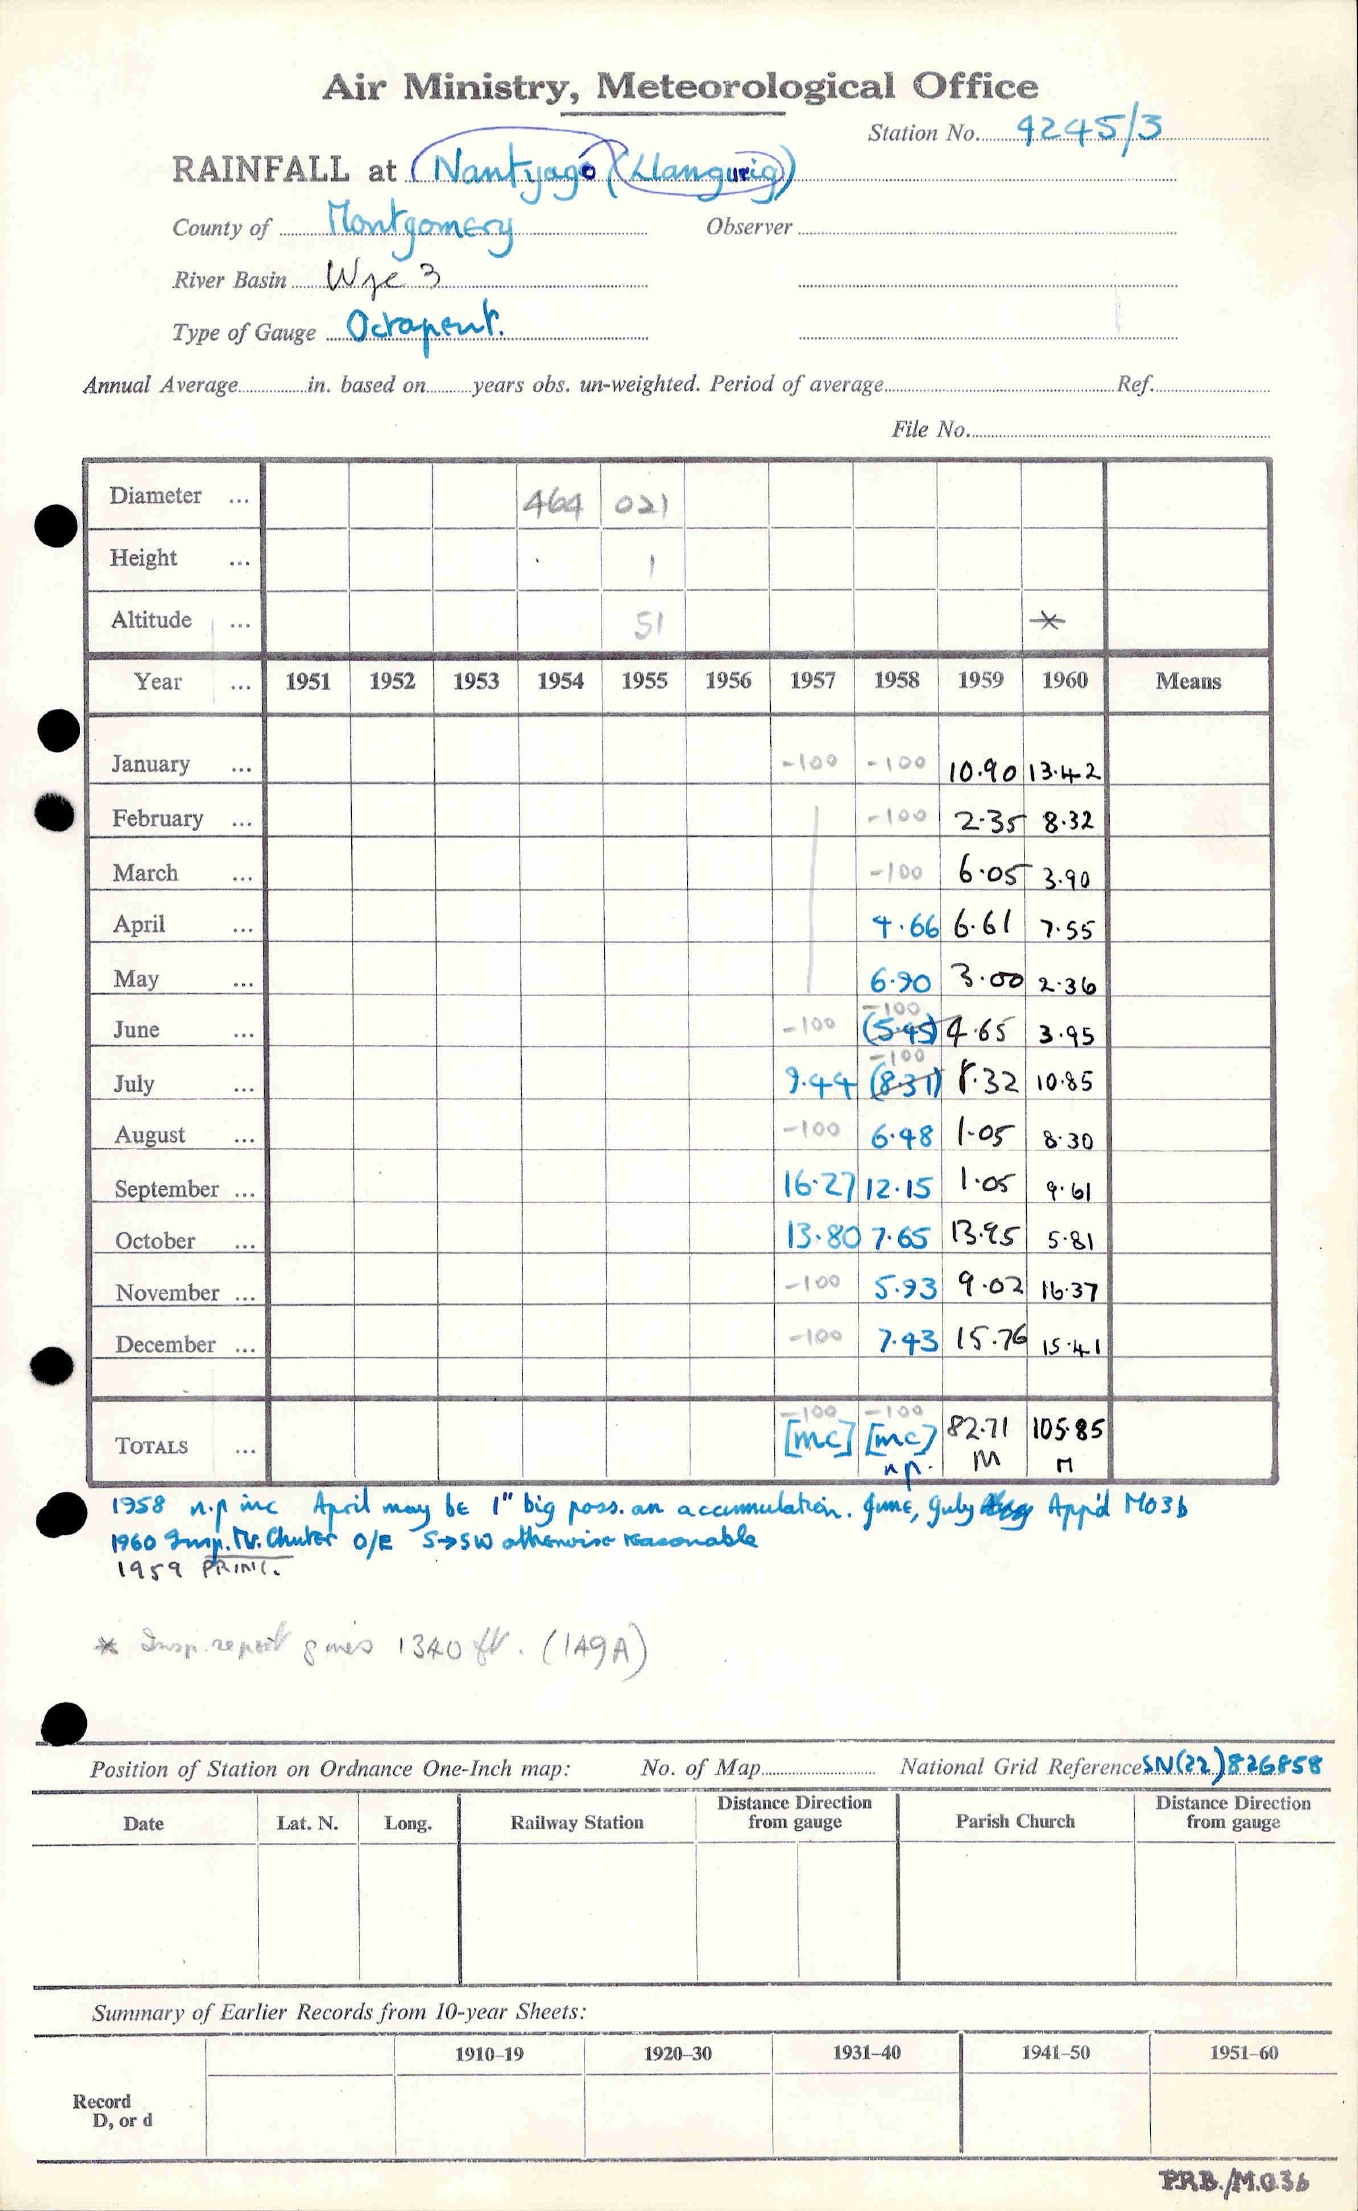 Air Ministry, Meteorological Office
Station No. 4245/3
RAINFALL at (Nantyago (Llangurig)
County of Montgomery Observer
River Basin Wye 3
Type of Gauge Octapent.
Annual Average in. based on years obs. un-weighted. Period of average Ref.
File No.
Diameter ... 464 021
Height ... 1
Altitude ... 51 *
Year ... 1951 1952 1953 1954 1955 1956 1957 1958 1959 1960 Means
January ... -100 -100 10.90 13.42
February ... -100 2.35 8.32
March ... -100 6.05 3.90
April ... 4.66 6.61 7.55
May ... 6.90 3.00 2.36
-100
June ... -100 (5.45) 4.65 3.95
-100
July ... 9.44 (8.31) 8.32 10.85
August ... -100 6.48 1.05 8.30
September ... 16.27 12.15 1.05 9.61
October ... 13.80 7.65 13.95 5.81
November ... -100 5.93 9.02 16.37
December ... -100 7.43 15.76 15.41
-100 -100
TOTALS ... [mc] [mc] 82.71 105.85
n.p. M M
1958 n.p inc April may be 1" big poss. an accumulation. June, July App'd M03b
1960 Insp. Mr. Chuter O/E S→SW otherwise reasonable
1959 PRINT.
* Insp. report gives 1340 ft. (149A)
Position of Station on Ordnance One-Inch map: No. of Map National Grid Reference SN(22)826858
Date Lat. N. Long. Railway Station Distance Direction from gauge Parish Church Distance Direction from gauge
Summary of Earlier Records from 10-year Sheets:
1910–19 1920–30 1931–40 1941–50 1951–60
Record
D, or d
P.R.B./M.O.3b